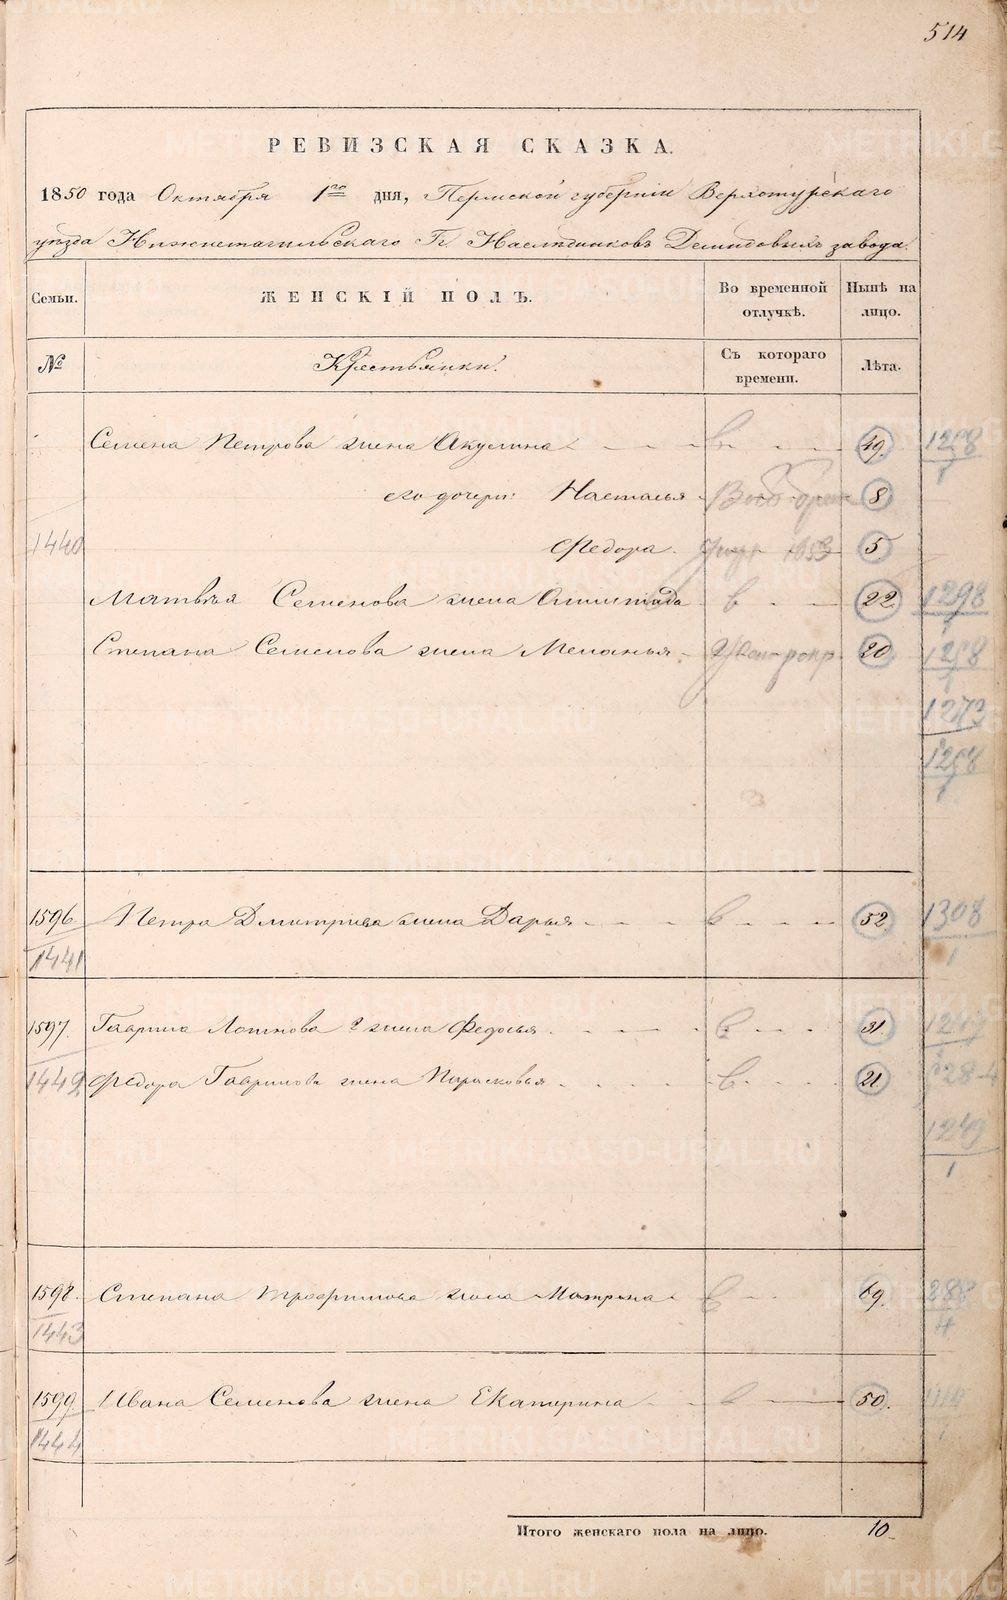 514
РЕВИЗСКАЯ СКАЗКА.
1850 года Октября 1го дня, Пермской губернии Верхотурскаго
уѣзда Нижнетагильскаго Гг. Наслѣдниковъ Демидовыхъ завода.
Семьи. ЖЕНСКІЙ ПОЛЪ. Во временной отлучкѣ. Нынѣ на лицо.
№ Крестьянки. Съ котораго времени. Лѣта.
Семена Петрова жена Акулина 49. 1298/1
его дочери: Настасья 8
1440 Федора. 1853 5
Матвѣя Семенова жена 22 1298/1
Степана Семенова жена Меланья 20 1298/1
1273
1298/1
1596 Петра Дмитріева жена Дарья 52. 1308/1
1441
1597. Гаврила Логинова 2 жена Федосья 31. 1249
1442 Федора Гаврилова жена Парасковья 21
1249/1
1598. Степана Трофимова жена Матрена 69. 288/4
1443
1599 Ивана Семенова жена Екатерина 50.
1444
Итого женскаго пола на лицо. 10
METRIKI.GASO-URAL.RU